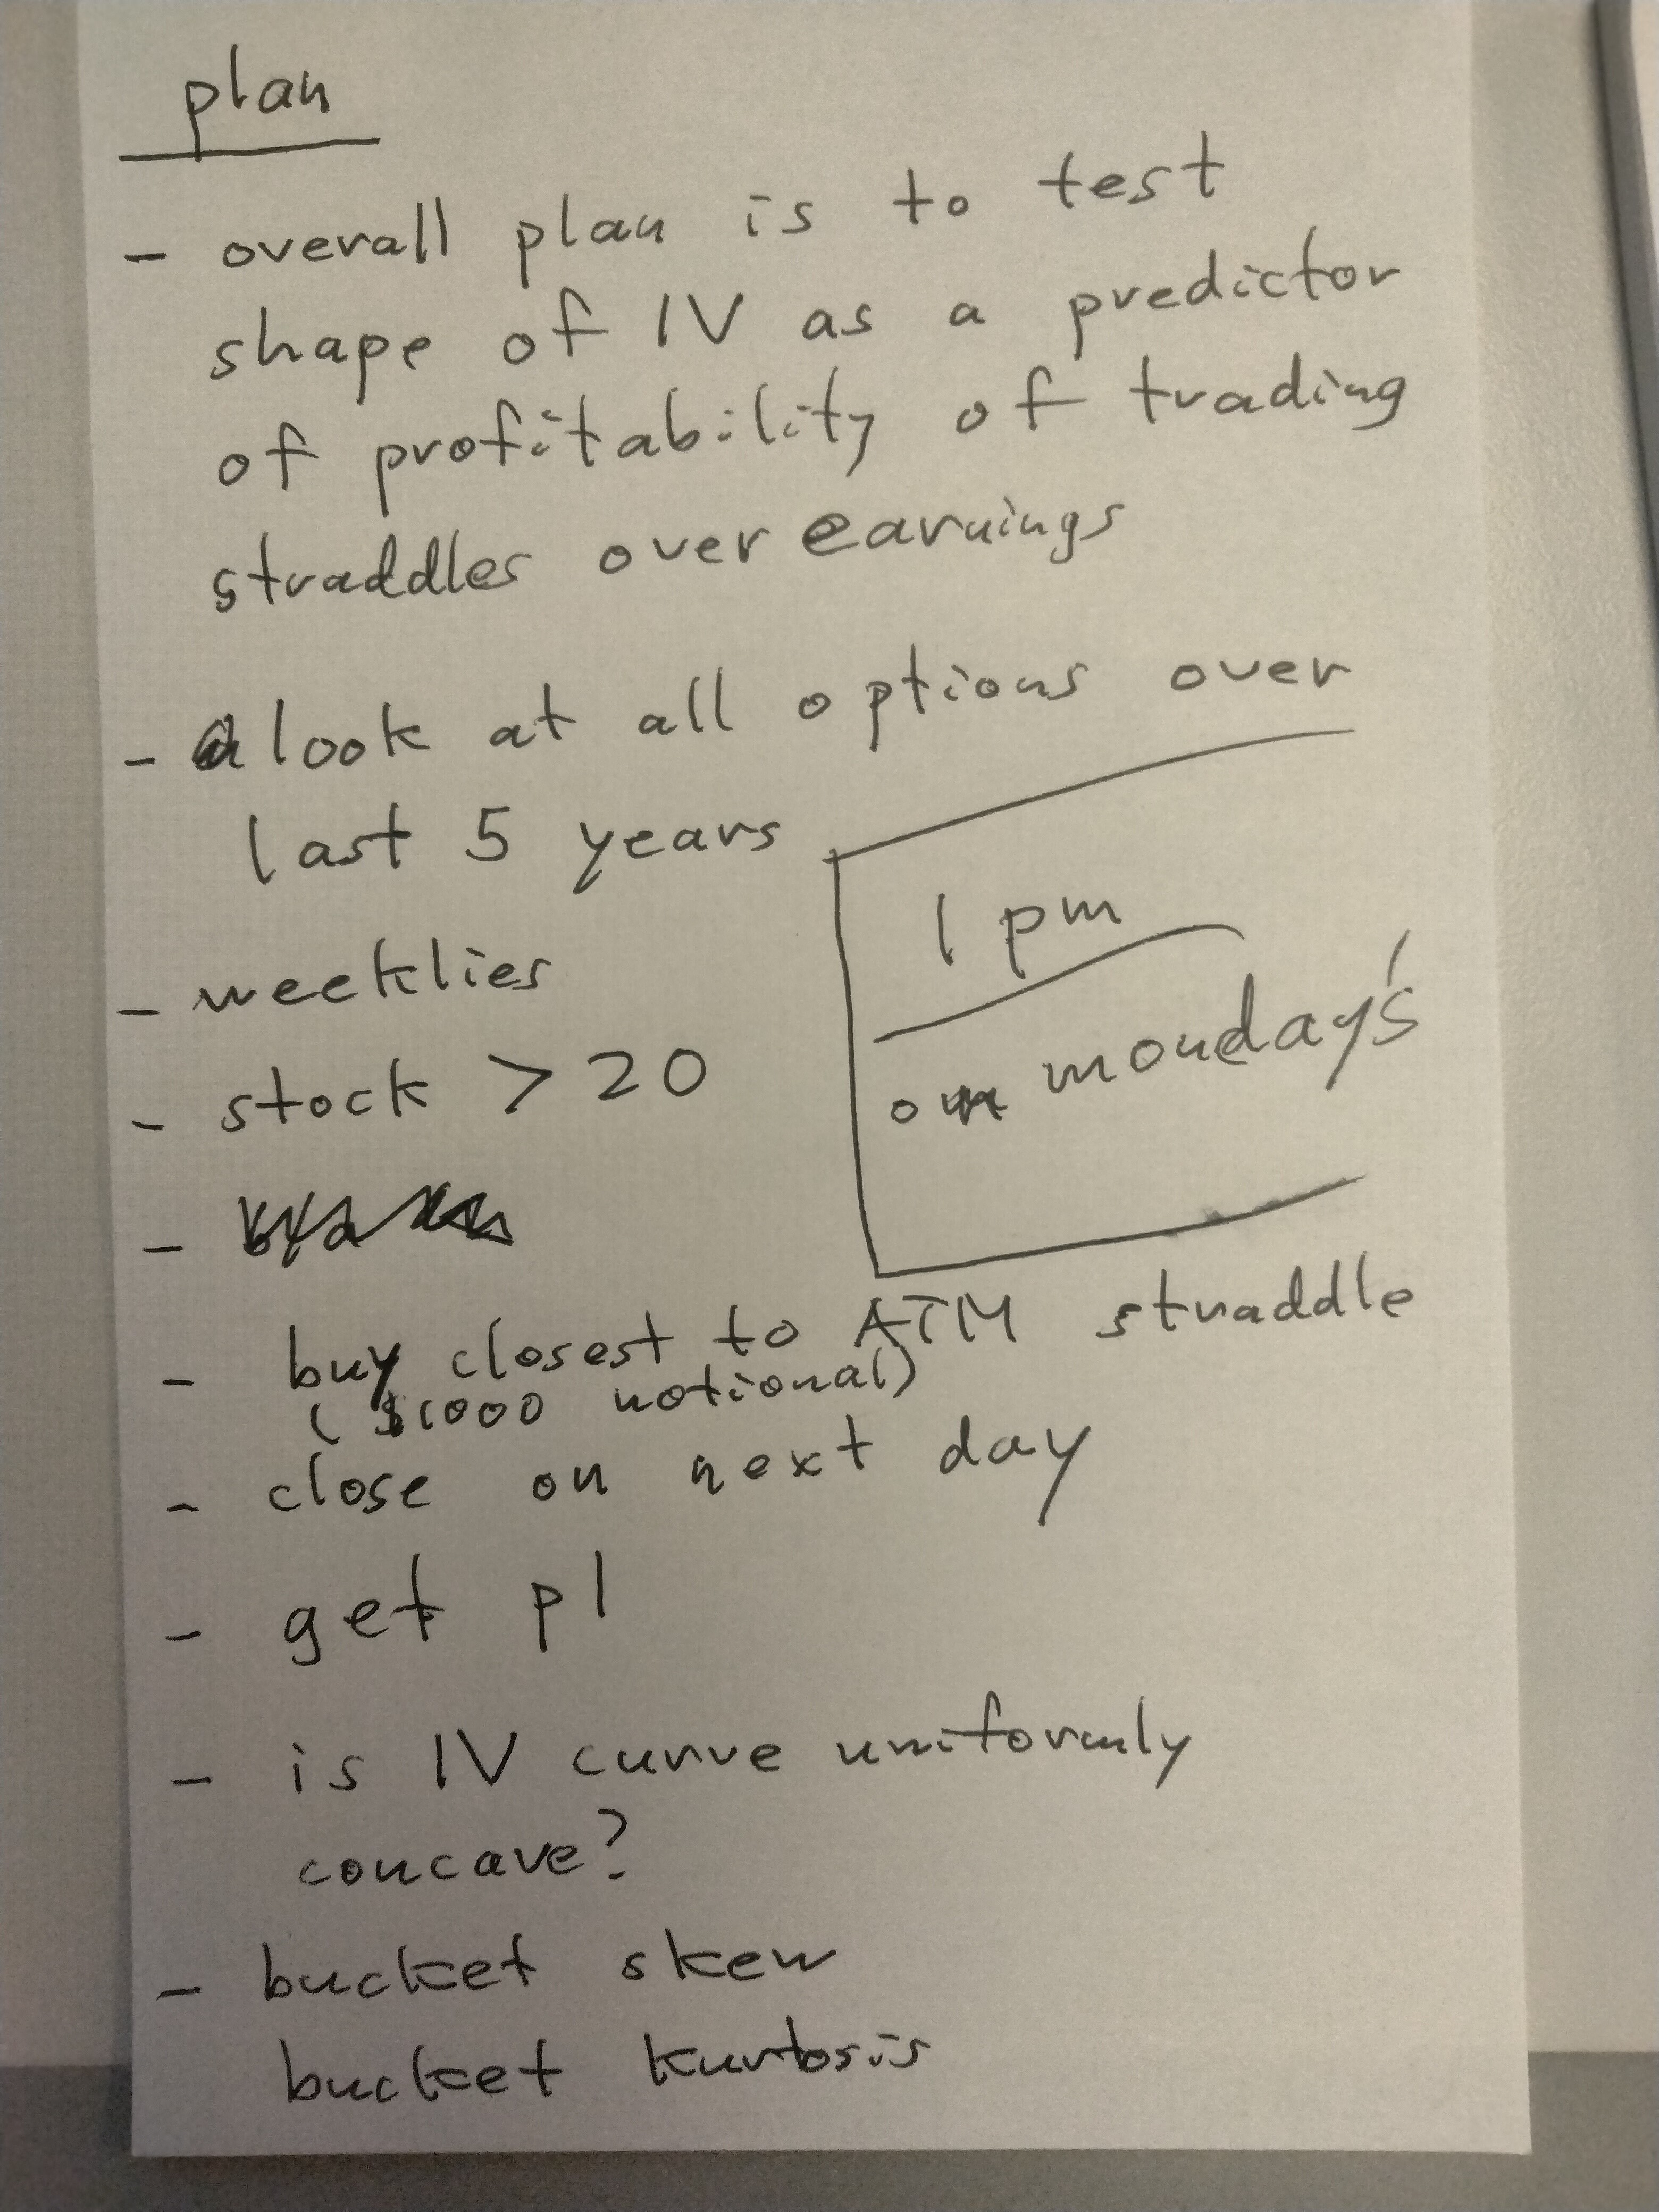 plan
- overall plan is to test
shape of IV as a predictor
of profitability of trading
straddles over earnings
- look at all options over
last 5 years
- weeklies
- stock > 20
-
1 pm
on monday's
- buy closest to ATM straddle
( $1000 notional)
- close on next day
- get pl
- is IV curve uniformly
concave?
- bucket skew
bucket kurtosis